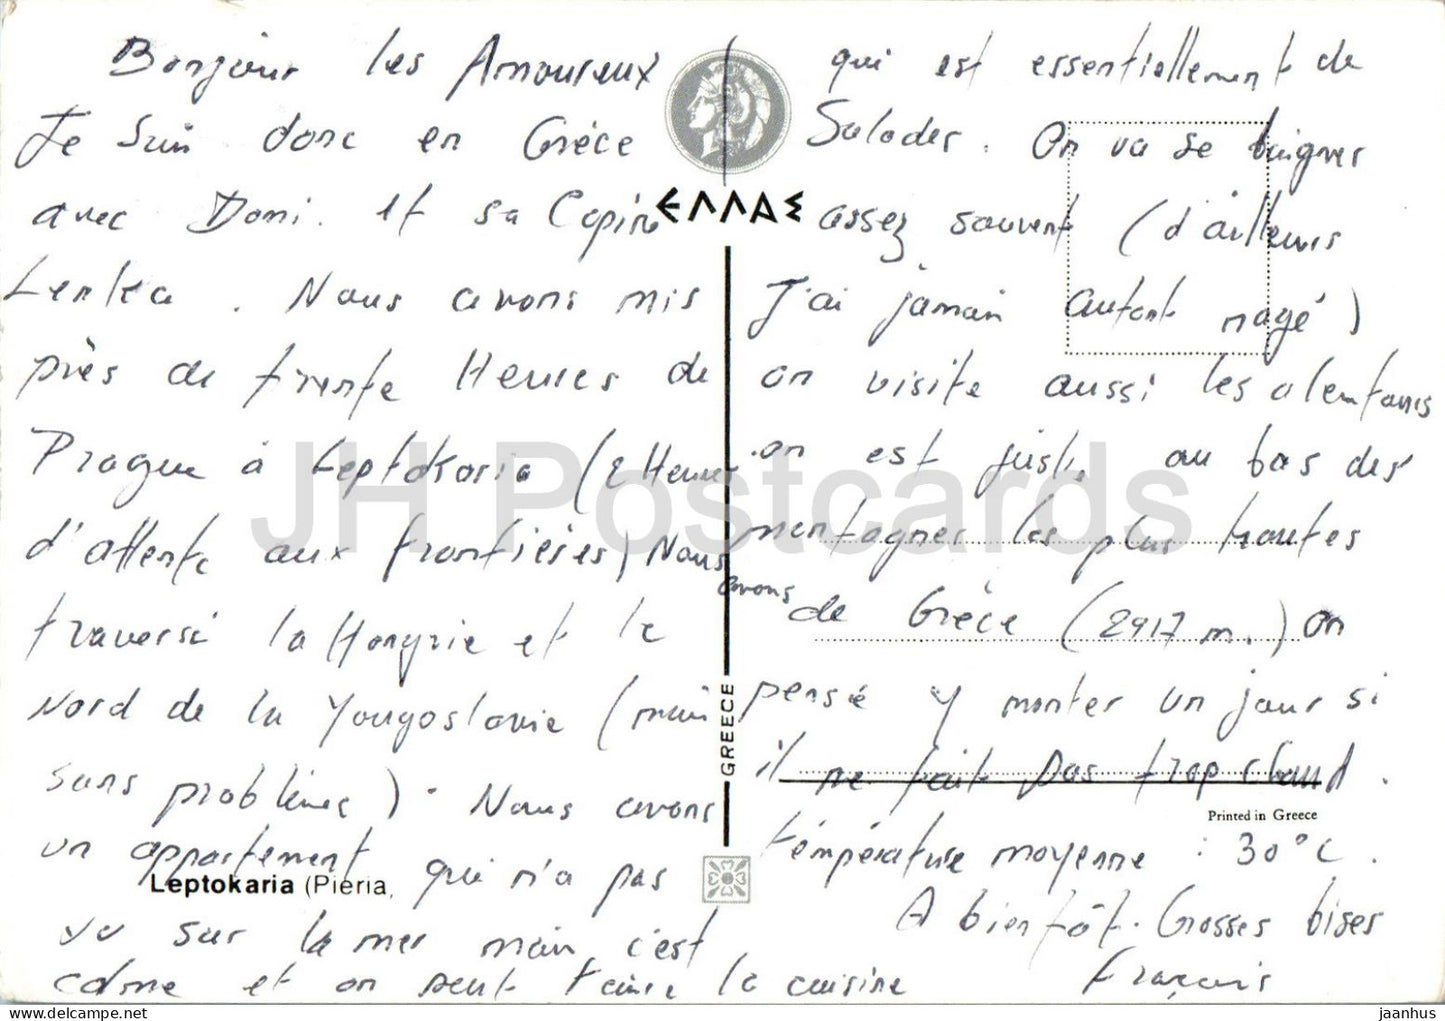 Bonjour les Amoureux
Je suis donc en Grèce
avec Domi. et sa Copine
Lenka. Nous avons mis
près de trente Heures de
Prague à Leptokaria (2 Heures
d'attente aux frontières) Nous
avons
traversé la Hongrie et le
Nord de la Yougoslavie (mais
sans problèmes). Nous avons
un appartement qui n'a pas
vu sur la mer mais c'est
calme et on peut faire la cuisine
qui est essentiellement de
Salades. On va se baigner
assez souvent (d'ailleurs
J'ai jamais autant nagé)
on visite aussi les alentours
on est juste au bas des
montagnes les plus hautes
de Grèce (2917 m.) on
pense y monter un jour si
il ne fait pas trop chaud.
température moyenne : 30°C.
A bientôt. Grosses bises
François
ΕΛΛΑΣ
GREECE
Printed in Greece
Leptokaria (Pieria,
JH Postcards
jaanhus